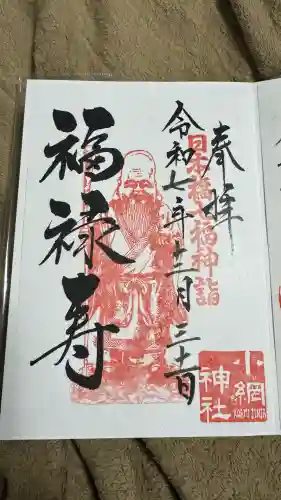 奉拝
日本橋七福神詣
令和七年十二月三十日
福禄寿
小網
神社